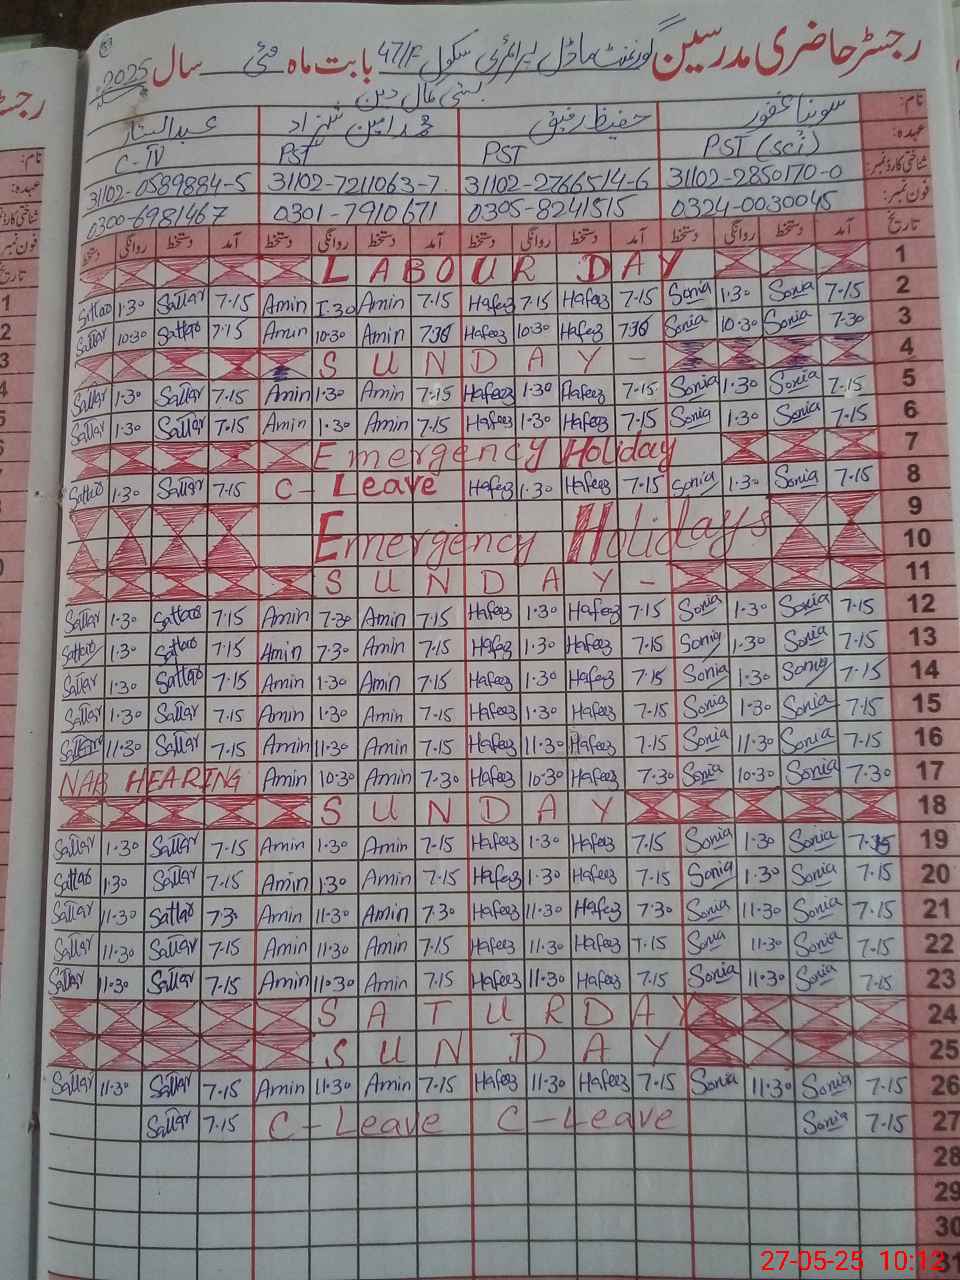 رجسٹر حاضری مدرسین گورنمنٹ ماڈل پرائمری سکول 47/F بابت ماہ مئی سال 2025
بستی کمال دین
نام: سونیا غفور حفیظ رفیق محمد امین شہزاد عبدالستار
عہدہ: PST (sci) PST PST C-IV
شناختی کارڈ نمبر: 31102-2850170-0 31102-2766514-6 31102-7211063-7 31102-0589884-5
فون نمبر: 0324-0030045 0305-8241515 0301-7910671 0300-6981467
تاریخ آمد دستخط روانگی دستخط آمد دستخط روانگی دستخط آمد دستخط روانگی دستخط آمد دستخط روانگی دستخط
LABOUR DAY 1
Sattar 1.30 Sattar 7.15 Amin 1.30 Amin 7.15 Hafeez 7.15 Hafeez 7.15 Sonia 1.30 Sonia 7.15 2
Sattar 10.30 Sattar 7.15 Amin 10.30 Amin 7.30 Hafeez 10.30 Hafeez 7.30 Sonia 10.30 Sonia 7.30 3
SUNDAY - 4
Sattar 1.30 Sattar 7.15 Amin 1.30 Amin 7.15 Hafeez 1.30 Hafeez 7.15 Sonia 1.30 Sonia 7.15 5
Sattar 1.30 Sattar 7.15 Amin 1.30 Amin 7.15 Hafeez 1.30 Hafeez 7.15 Sonia 1.30 Sonia 7.15 6
Emergency Holiday 7
Sattar 1.30 Sattar 7.15 C-Leave Hafeez 1.30 Hafeez 7.15 Sonia 1.30 Sonia 7.15 8
9
Emergency Holidays 10
SUNDAY - 11
Sattar 1.30 Sattar 7.15 Amin 7.30 Amin 7.15 Hafeez 1.30 Hafeez 7.15 Sonia 1.30 Sonia 7.15 12
Sattar 1.30 Sattar 7.15 Amin 7.30 Amin 7.15 Hafeez 1.30 Hafeez 7.15 Sonia 1.30 Sonia 7.15 13
Sattar 1.30 Sattar 7.15 Amin 1.30 Amin 7.15 Hafeez 1.30 Hafeez 7.15 Sonia 1.30 Sonia 7.15 14
Sattar 1.30 Sattar 7.15 Amin 1.30 Amin 7.15 Hafeez 1.30 Hafeez 7.15 Sonia 1.30 Sonia 7.15 15
Sattar 11.30 Sattar 7.15 Amin 11.30 Amin 7.15 Hafeez 11.30 Hafeez 7.15 Sonia 11.30 Sonia 7.15 16
NAB HEARING Amin 10.30 Amin 7.30 Hafeez 10.30 Hafeez 7.30 Sonia 10.30 Sonia 7.30 17
SUNDAY 18
Sattar 1.30 Sattar 7.15 Amin 1.30 Amin 7.15 Hafeez 1.30 Hafeez 7.15 Sonia 1.30 Sonia 7.15 19
Sattar 1.30 Sattar 7.15 Amin 1.30 Amin 7.15 Hafeez 1.30 Hafeez 7.15 Sonia 1.30 Sonia 7.15 20
Sattar 11.30 Sattar 7.30 Amin 11.30 Amin 7.30 Hafeez 11.30 Hafeez 7.30 Sonia 11.30 Sonia 7.15 21
Sattar 11.30 Sattar 7.15 Amin 11.30 Amin 7.15 Hafeez 11.30 Hafeez 7.15 Sonia 11.30 Sonia 7.15 22
Sattar 11.30 Sattar 7.15 Amin 11.30 Amin 7.15 Hafeez 11.30 Hafeez 7.15 Sonia 11.30 Sonia 7.15 23
SATURDAY 24
SUNDAY 25
Sattar 11.30 Sattar 7.15 Amin 11.30 Amin 7.15 Hafeez 11.30 Hafeez 7.15 Sonia 11.30 Sonia 7.15 26
Sattar 7.15 C-Leave C-Leave Sonia 7.15 27
28
29
30
31
27-05-25 10:12